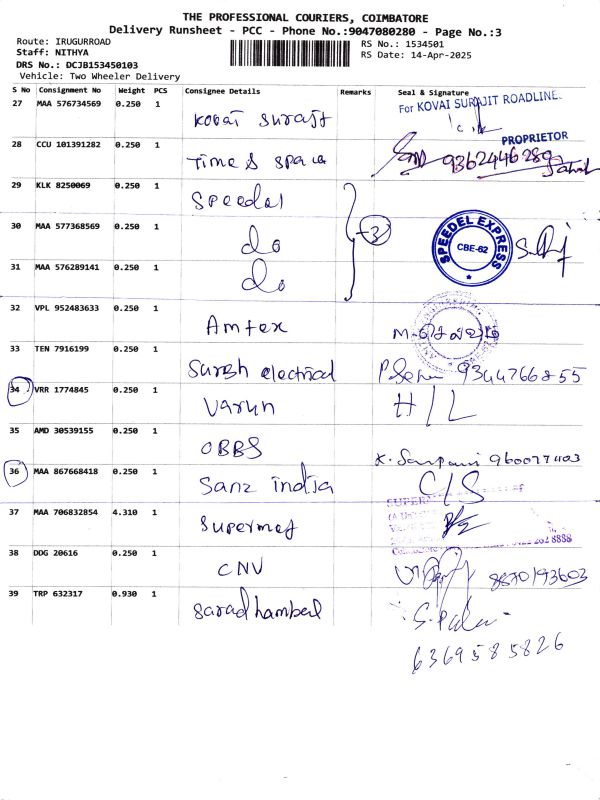 THE PROFESSIONAL COURIERS, COIMBATORE
Delivery Runsheet - PCC - Phone No.:9047080280 - Page No.:3
Route: IRUGURROAD
Staff: NITHYA
DRS No.: DCJB153450103
Vehicle: Two Wheeler Delivery
RS No.: 1534501
RS Date: 14-Apr-2025
S No Consignment No Weight PCS Consignee Details Remarks Seal & Signature
27 MAA 576734569 0.250 1 Kovai Surajt For KOVAI SURAJIT ROADLINE
PROPRIETOR
28 CCU 101391282 0.250 1 Time & space 9362446289
29 KLK 8250069 0.250 1 Speedel
30 MAA 577368569 0.250 1 do 3 SPEEDEL EXPRESS CBE-62
31 MAA 576289141 0.250 1 do
32 VPL 952483633 0.250 1 Amtex
33 TEN 7916199 0.250 1 Suresh electrical 9344766855
34 VRR 1774845 0.250 1 Varun H/L
35 AMD 30539155 0.250 1 OBBS 9600777403
36 MAA 867668418 0.250 1 Sanz india C/S
37 MAA 706832854 4.310 1 Supermet
38 DDG 20616 0.250 1 CNV 8870193603
39 TRP 632317 0.930 1 Saradhambal
6369585826